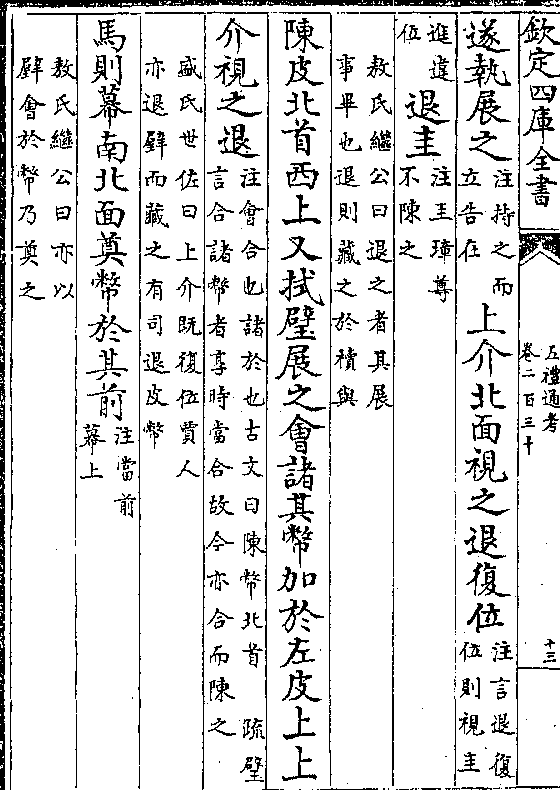 欽定四庫全書
五禮通考
卷二百三十
十三
遂執展之注持之而立告在上介北面視之退復位注言退復位則視圭
進違位退圭注圭璋尊不陳之
敖氏繼公曰退之者其展
事畢也退則藏之於櫝與
陳皮北首西上又拭璧展之會諸其幣加於左皮上上
介視之退注會合也諸於也古文曰陳幣北首 疏璧言合諸幣者享時當合故今亦合而陳之
盛氏世佐曰上介既復位賈人
亦退璧而藏之有司退皮幣
馬則幕南北面奠幣於其前注當前幕上
敖氏繼公曰亦以
璧會於幣乃奠之